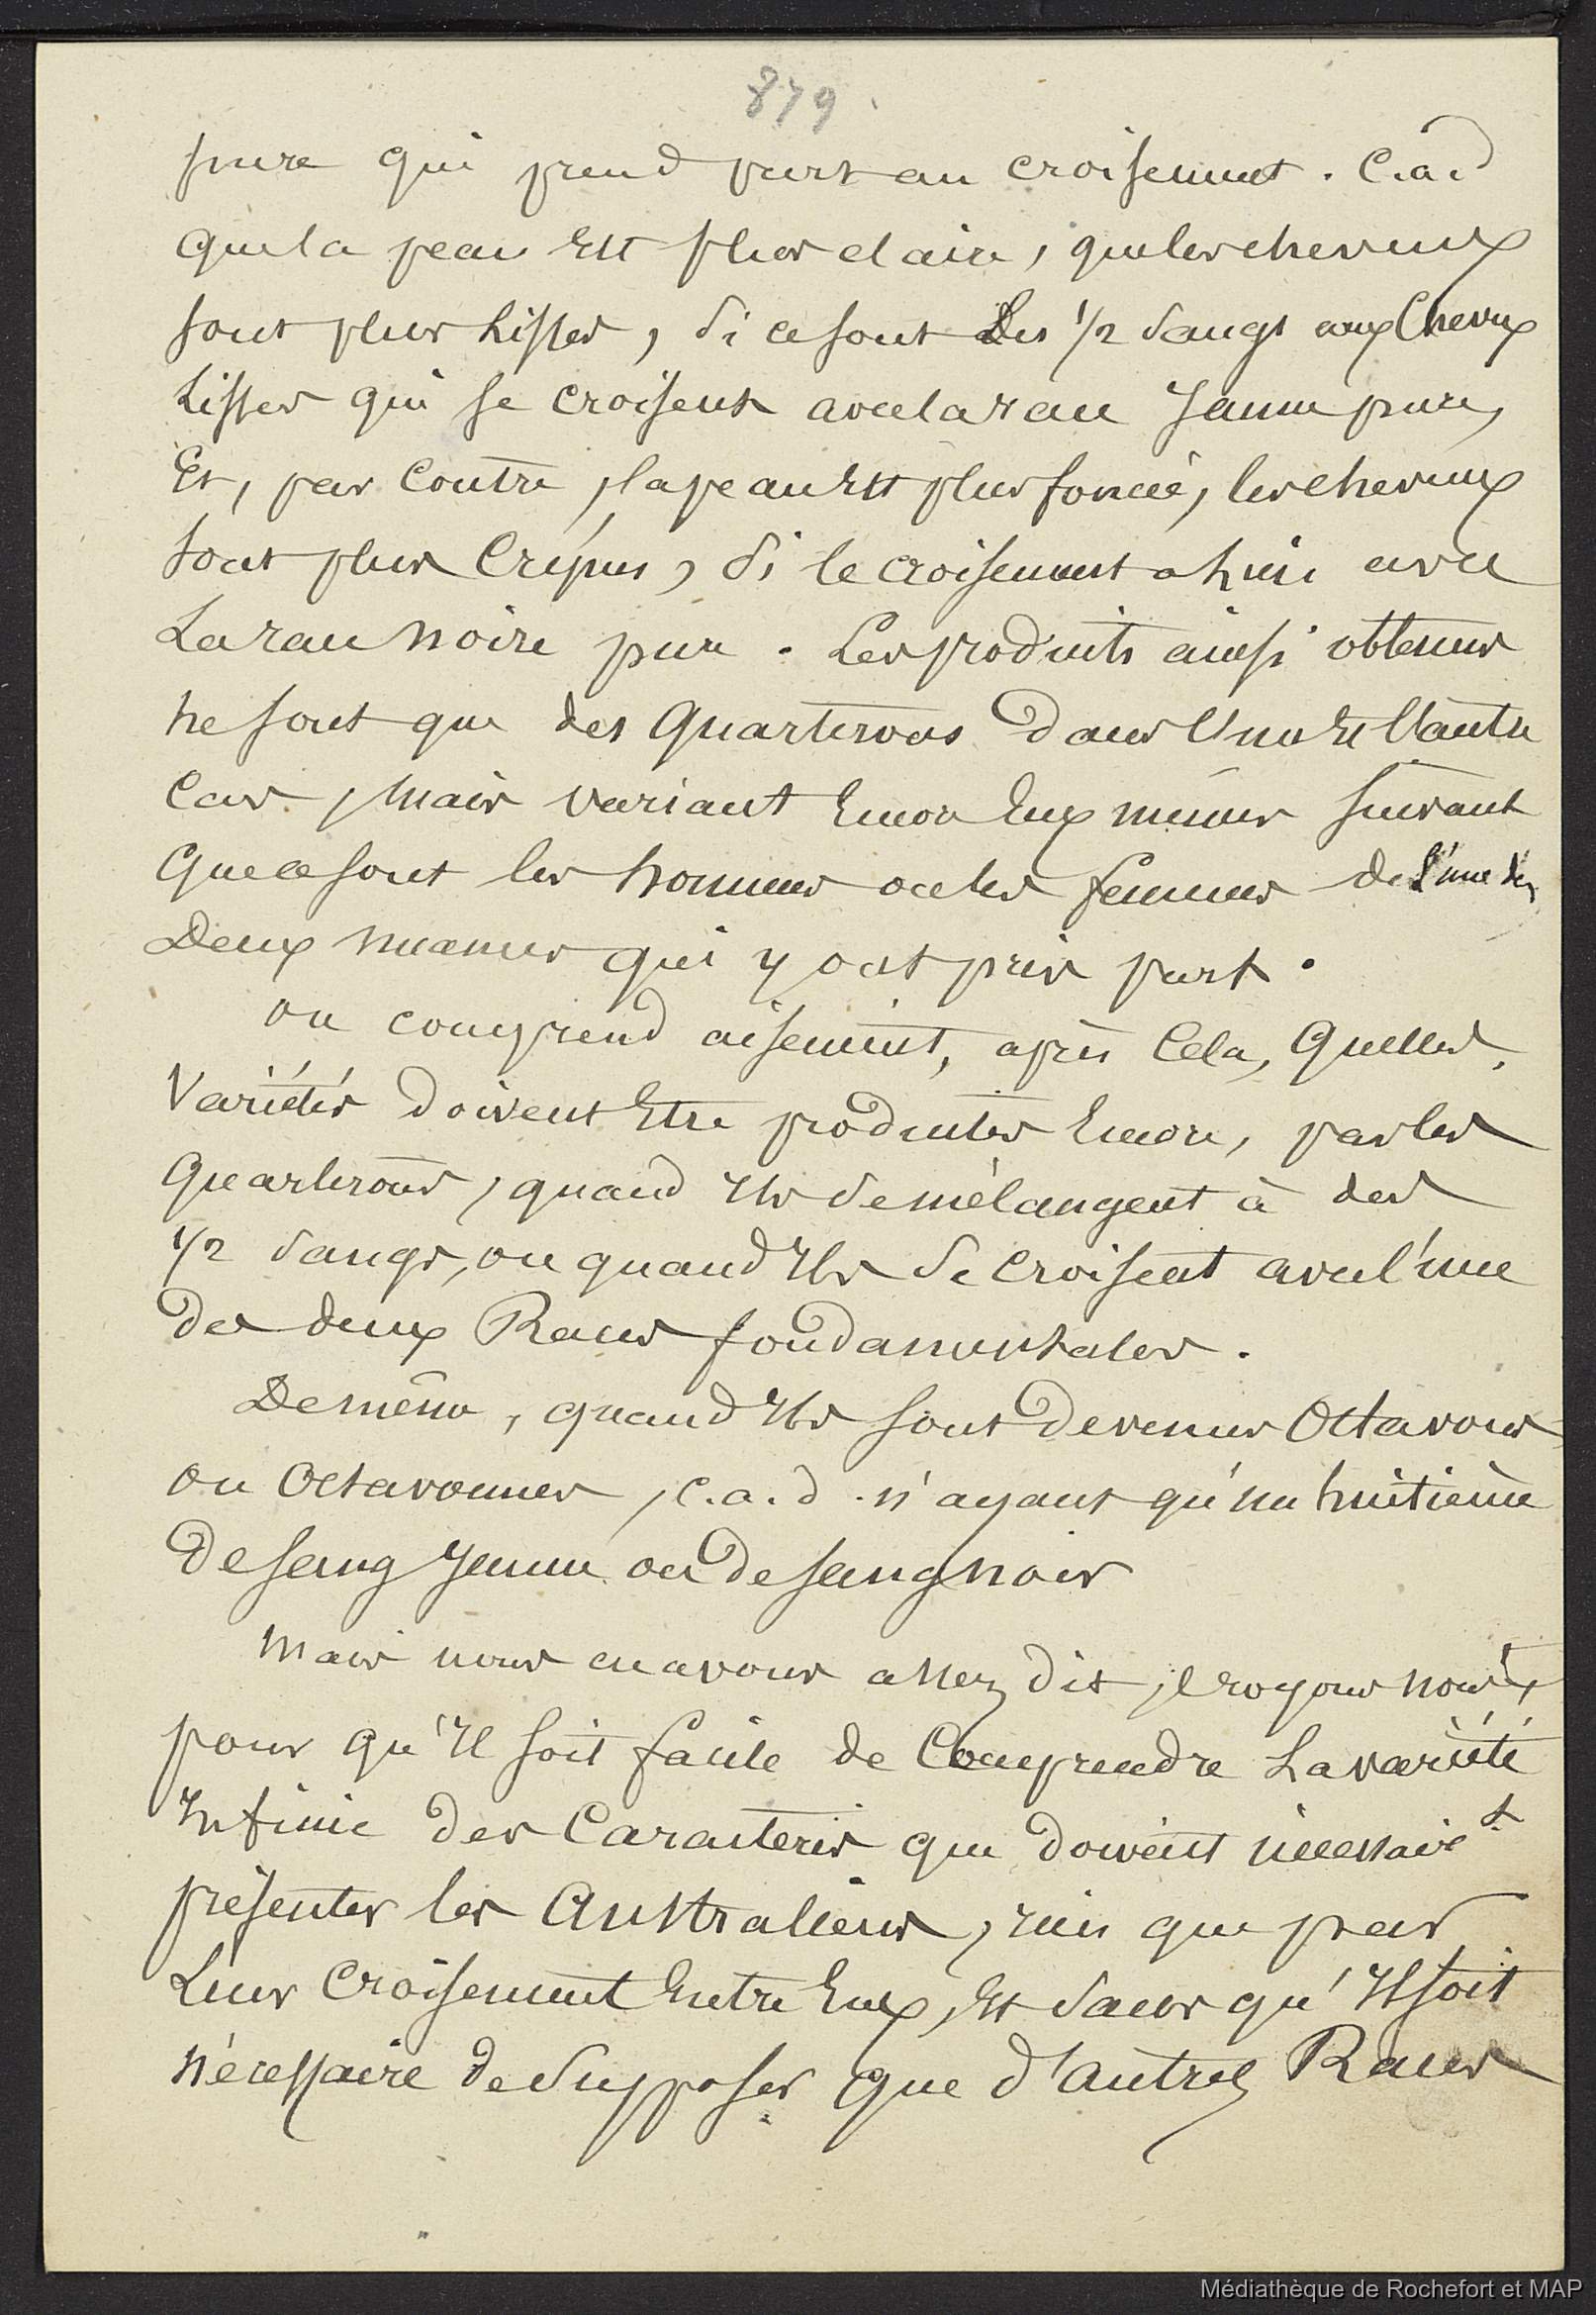 879
pure qui prend part au croisement. C.a.d
que la peau est plus claire, que les cheveux
sont plus lisses, si ce sont des 1/2 sangs aux cheveux
lisses qui se croisent avec la race Jaune pure,
Et, par contre, la peau est plus foncée, les cheveux
sont plus crépus, si le croisement a lieu avec
La race noire pure. Les produits ainsi obtenus
ne sont que des Quarterons dans l'un et l'autre
Cas, mais variant encore Eux mêmes suivant
que ce sont les hommes ou les femmes de l'une des
Deux nuances qui y ont pris part.
on comprend aisement, après Cela, quelles,
Variétés doivent Etre produites Encore, par les
Quarterons, quand Ils se mélangent à des
1/2 sangs, ou quand Ils se croisent avec l'une
des deux Races fondamentales.
De même, quand Ils sont devenus Octavons
ou Octavonnes, c.a.d. n'ayant qu'un huitième
De sang Jaune ou de sang noir
Mais nous en avons assez dit, croyons nous,
pour qu'Il soit facile de Comprendre La variété
Infinie des Caractères que doivent nécessairet
présenter les Australiens, rien que par
Leur Croisement Entre Eux, Et sans qu'Il soit
nécessaire de Supposer que d'autres Races
Médiathèque de Rochefort et MAP